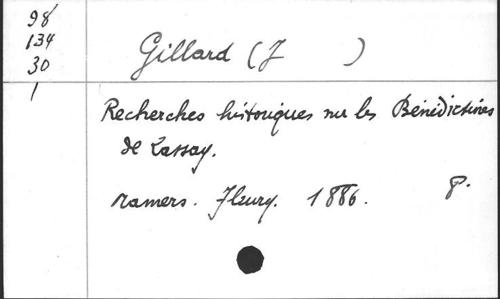 98
134
30
1
Gillard (J )
Recherches historiques sur les Bénédictines
de Lassay.
Mamers. Fleury. 1886. 8°.